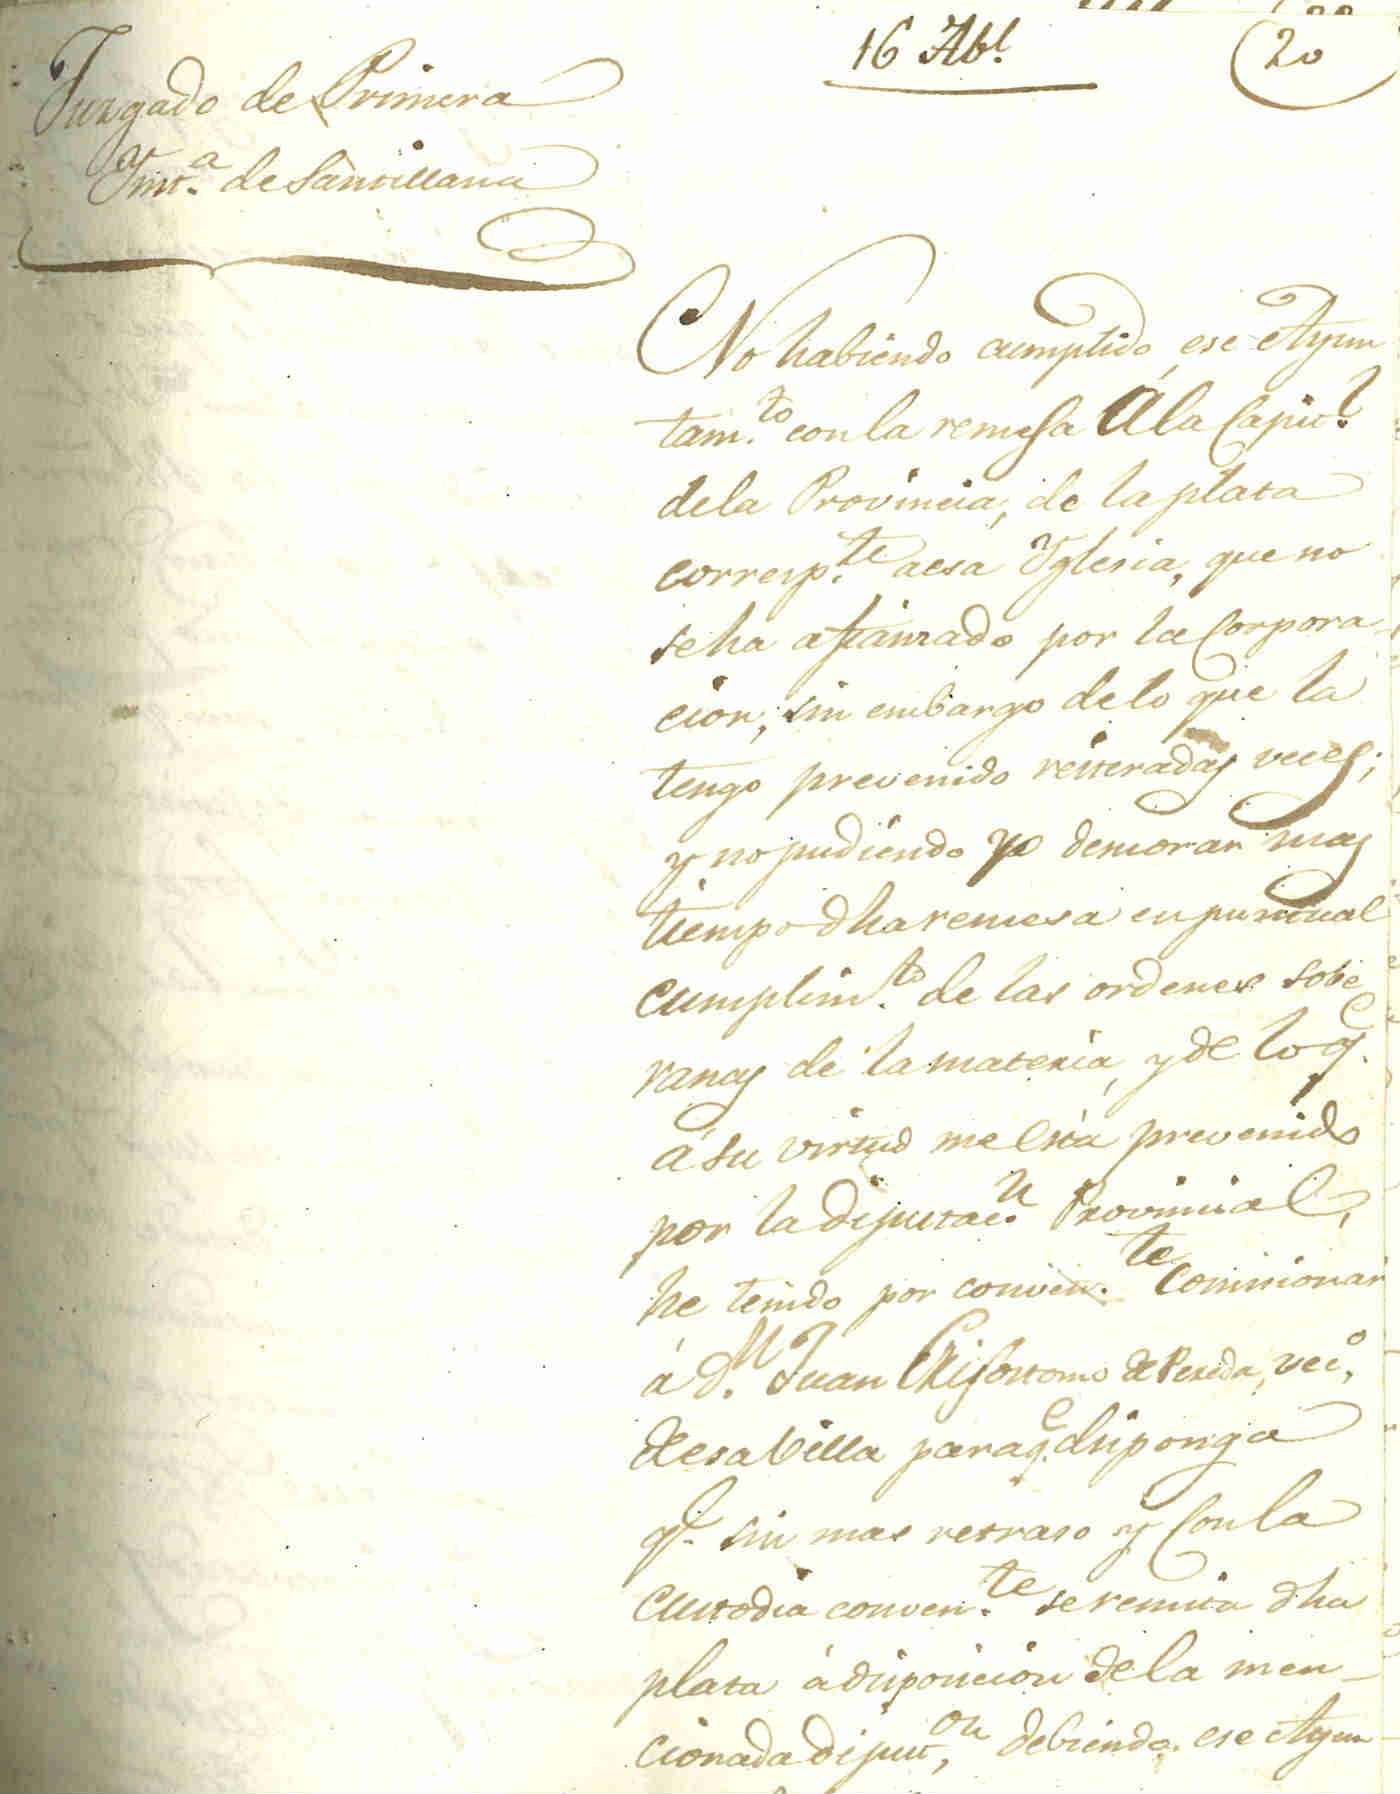 16 Abl.
20
Juzgado de Primera
Ynst.a de Santillana
No habiendo cumplido, ese Ayun
tam.to con la remesa Ála Capit.l
dela Provincia, de la plata
corresp.te aesa Yglesia, que no
seha afianzado por la Corpora
cion, sin embargo delo que la
tengo prevenido reiteradas veces;
y no pudiendo yo demorar mas
tiempo dha remesa en puntual
cumplim.to de las ordenes sobe
ranas de la materia, y de lo q.e
á su virtud me está prevenido
por la diputac.n Provincial,
he tenido por conven.te Comisionar
á d.n Juan Crisostomo de Pereda, vec.o
de esa Villa para q.e disponga
q.e sin mas retraso y Con la
custodia conven.te se remita dha
plata á disposicion de la men
cionada diput.on, debiendo ese Ayun